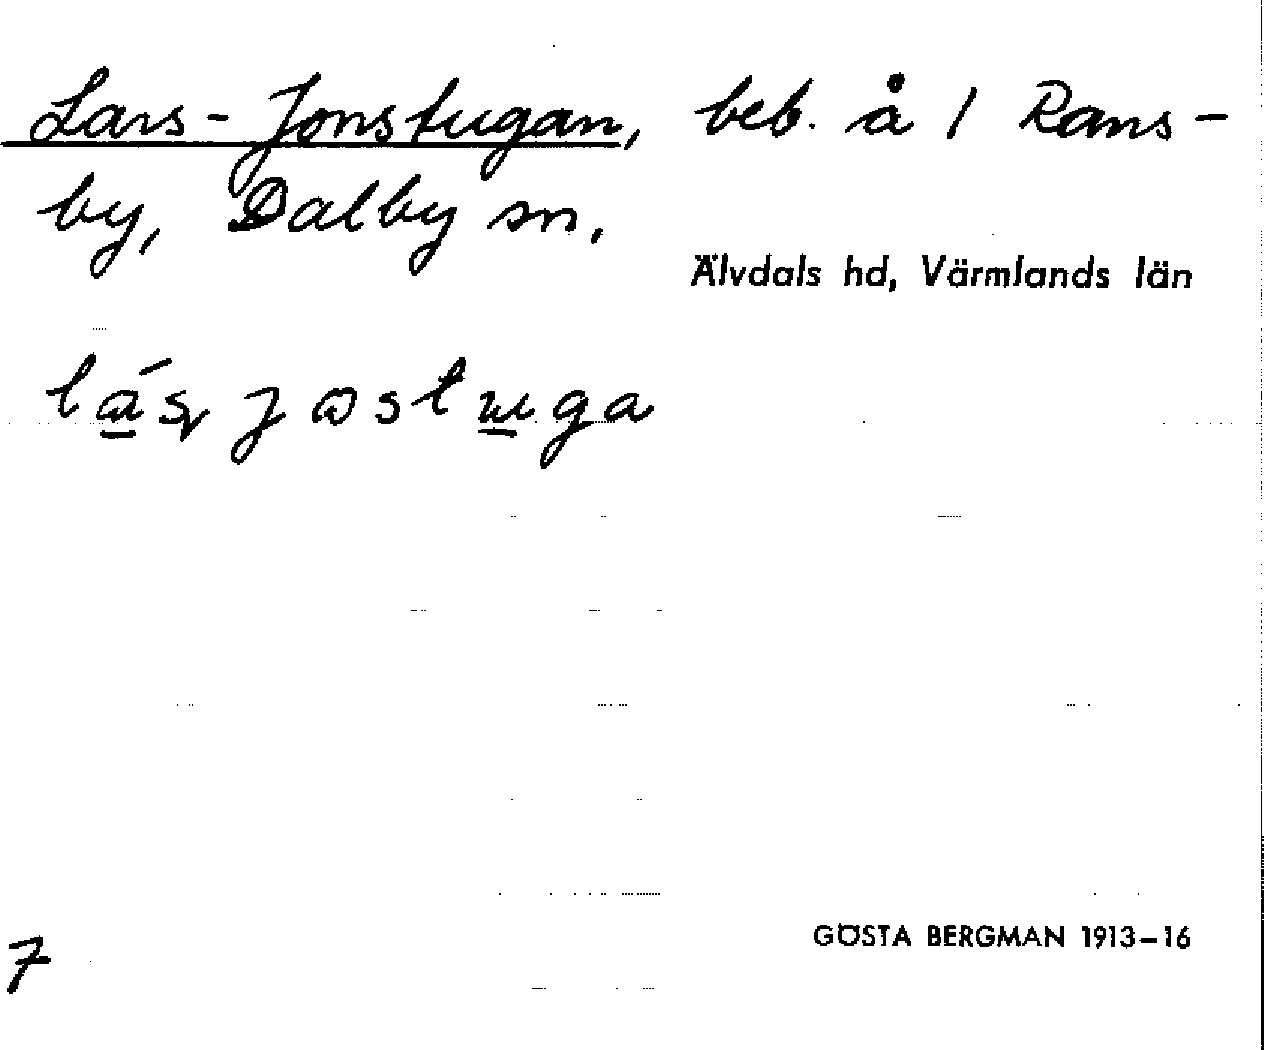 Lars-Jonstugan, beb. å 1 Rans-
by, Dalby sn.
Älvdals hd, Värmlands län
GÖSTA BERGMAN 1913–16
7